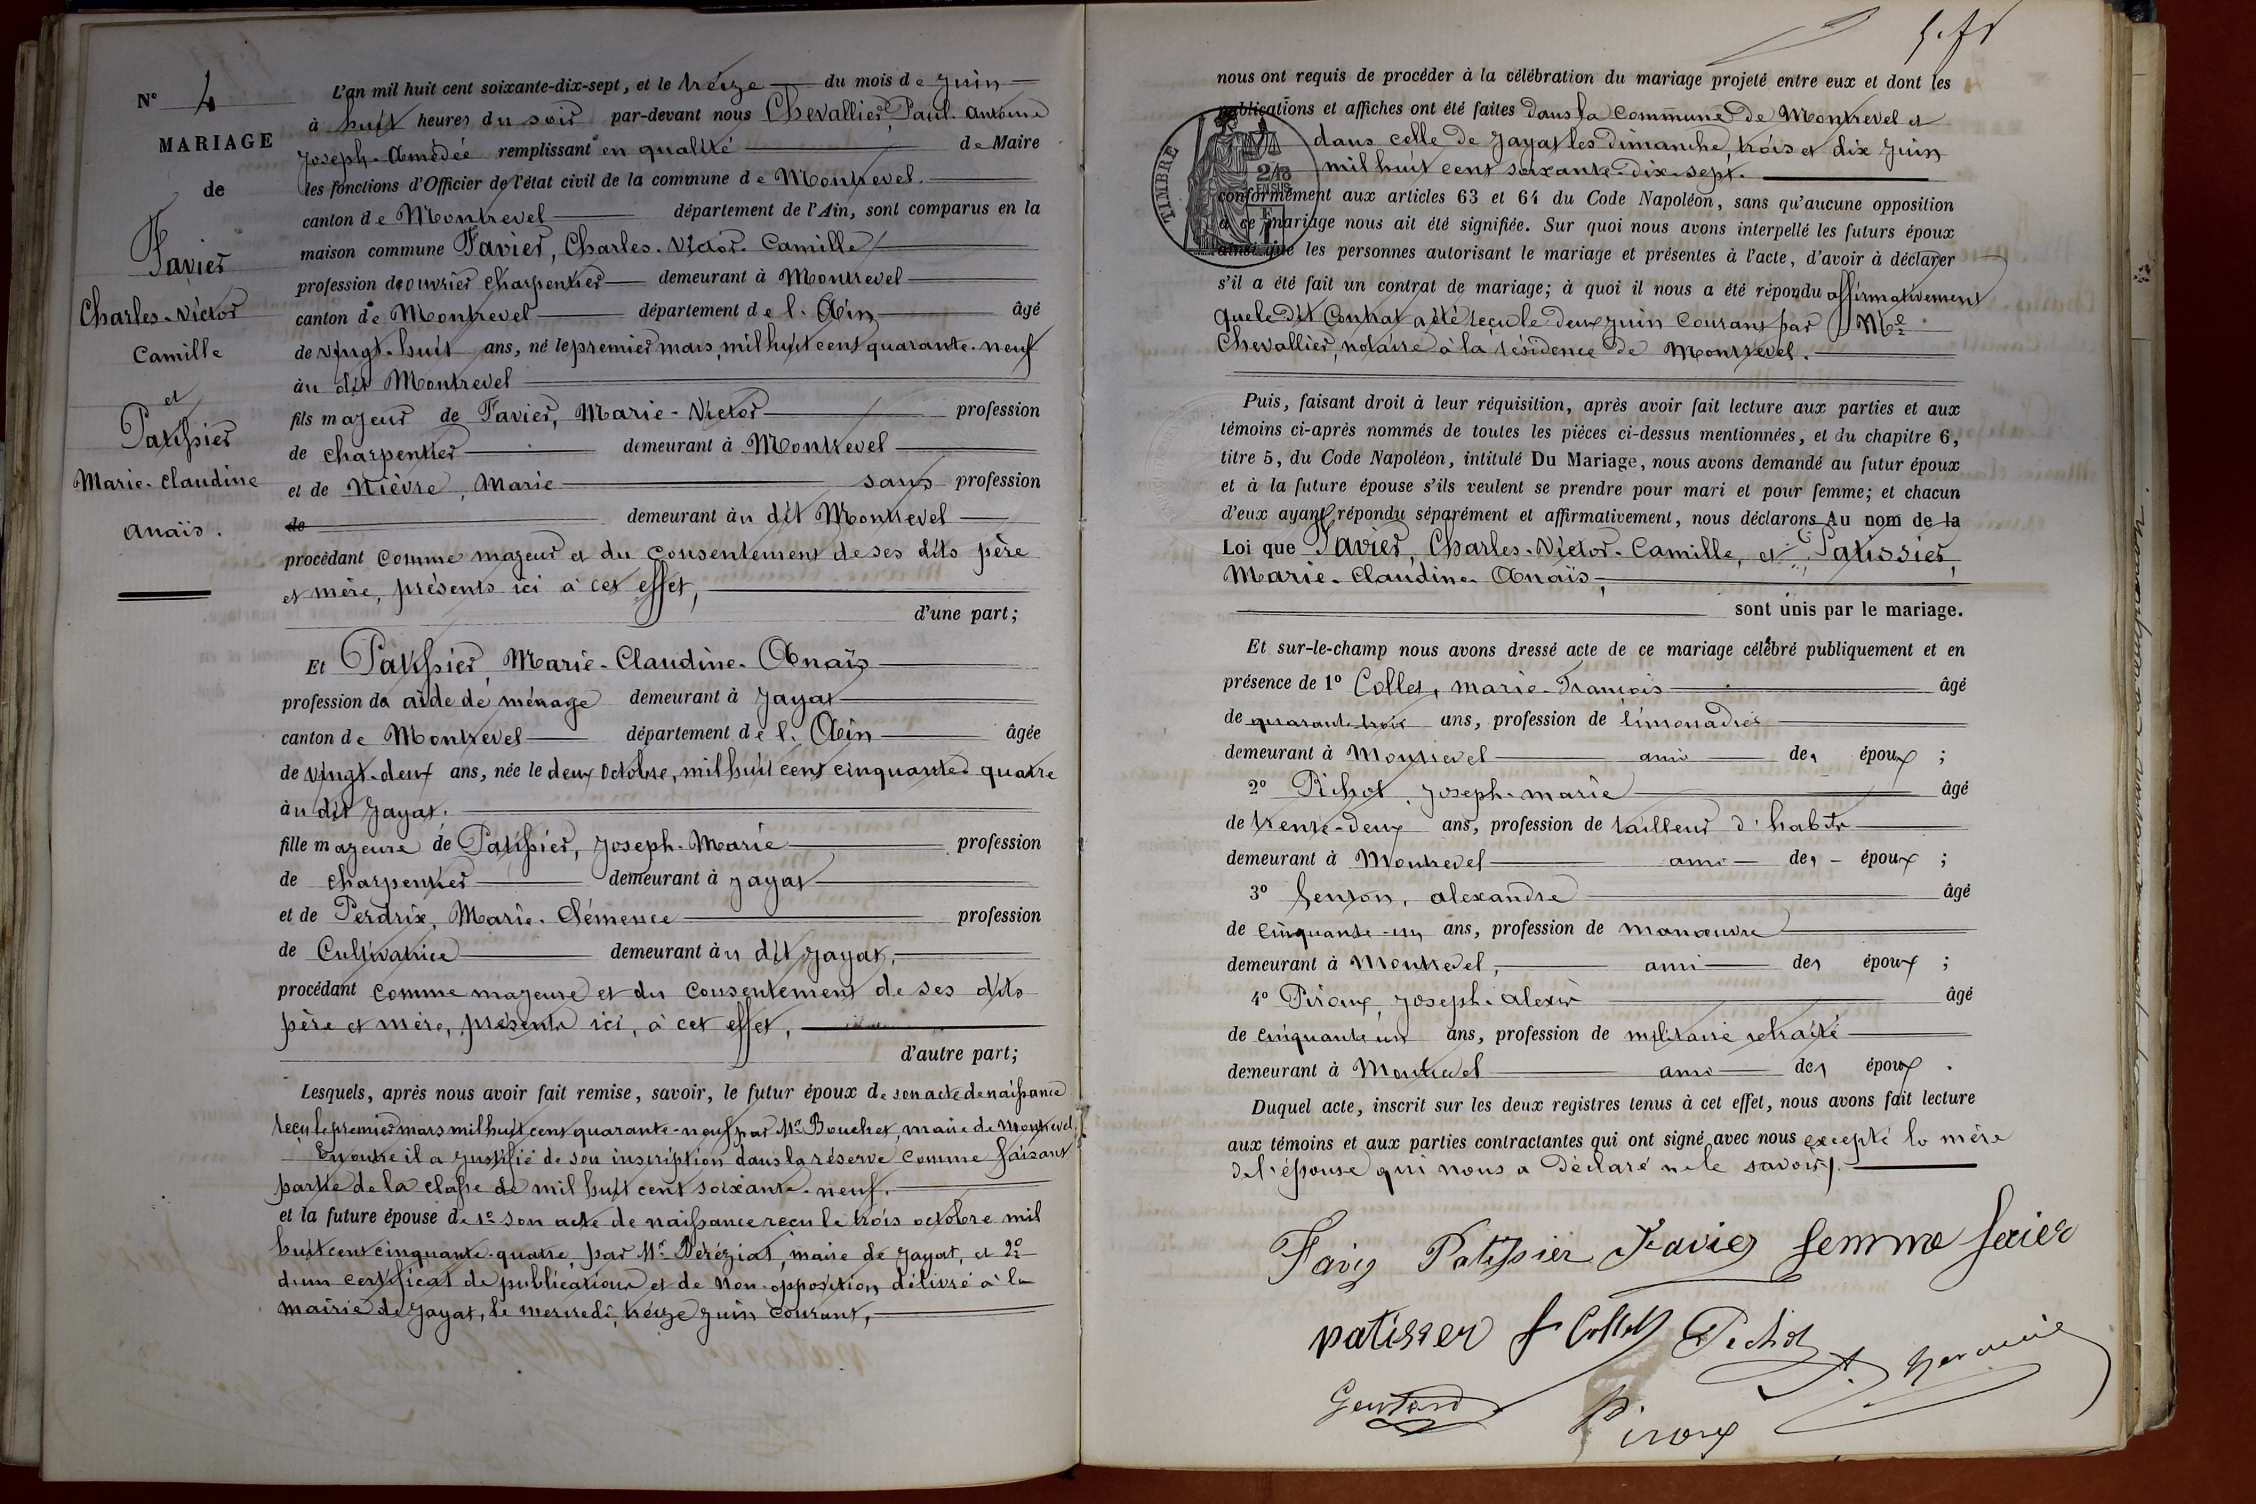 N° 4
MARIAGE
de
Favier
Charles-Victor
Camille
et
Patissier
Marie-Claudine
Anaïs.
L'an mil huit cent soixante-dix-sept, et le treize du mois de Juin
à huit heures du soir par-devant nous Chevallier, Paul-Antoine
Joseph-Amédée remplissant en qualité de Maire
les fonctions d'Officier de l'état civil de la commune de Montrevel
canton de Montrevel département de l'Ain, sont comparus en la
maison commune Favier, Charles-Victor-Camille
profession d'ouvrier charpentier demeurant à Montrevel
canton de Montrevel département de l'Ain âgé
de vingt-huit ans, né le premier mars, mil huit cent quarante-neuf
au dit Montrevel
fils majeur de Favier, Marie-Victor profession
de charpentier demeurant à Montrevel
et de Nièvre, Marie sans profession
de demeurant au dit Montrevel
procédant comme majeur et du consentement de ses dits père
et mère, présents ici à cet effet,
d'une part;
Et Patissier, Marie-Claudine-Anaïs
profession de aide de ménage demeurant à Jayat
canton de Montrevel département de l'Ain âgée
de vingt-deux ans, née le deux Octobre, mil huit cent cinquante-quatre
au dit Jayat.
fille majeure de Patissier, Joseph-Marie profession
de charpentier demeurant à Jayat
et de Perdrix, Marie-Clémence profession
de Cultivatrice demeurant au dit Jayat,
procédant comme majeure et du consentement de ses dits
père et mère, présents ici, à cet effet,
d'autre part;
Lesquels, après nous avoir fait remise, savoir, le futur époux de son acte de naissance
reçu le premier mars mil huit cent quarante-neuf par Mr Bouchet, maire de Montrevel.
En outre il a justifié de son inscription dans la réserve comme faisant
partie de la classe de mil huit cent soixante-neuf.
et la future épouse de 1° son acte de naissance reçu le trois octobre mil
huit cent cinquante-quatre, par Mr Péréziat, maire de Jayat, et 2°
d'un certificat de publications et de non-opposition délivré à la
mairie de Jayat, le mercredi, treize juin courant,
nous ont requis de procéder à la célébration du mariage projeté entre eux et dont les
publications et affiches ont été faites dans la commune de Montrevel et
dans celle de Jayat les dimanche, trois et dix Juin
mil huit cent soixante-dix-sept.
TIMBRE
conformément aux articles 63 et 64 du Code Napoléon, sans qu'aucune opposition
à ce mariage nous ait été signifiée. Sur quoi nous avons interpellé les futurs époux
ainsi que les personnes autorisant le mariage et présentes à l'acte, d'avoir à déclarer
s'il a été fait un contrat de mariage; à quoi il nous a été répondu affirmativement
que le dit contrat a été reçu le deux juin courant par Me
Chevallier, notaire à la résidence de Montrevel.
Puis, faisant droit à leur réquisition, après avoir fait lecture aux parties et aux
témoins ci-après nommés de toutes les pièces ci-dessus mentionnées, et du chapitre 6,
titre 5, du Code Napoléon, intitulé Du Mariage, nous avons demandé au futur époux
et à la future épouse s'ils veulent se prendre pour mari et pour femme; et chacun
d'eux ayant répondu séparément et affirmativement, nous déclarons Au nom de la
Loi que Favier, Charles-Victor-Camille, et Patissier,
Marie-Claudine-Anaïs,
sont unis par le mariage.
Et sur-le-champ nous avons dressé acte de ce mariage célébré publiquement et en
présence de 1° Collet, Marie-François âgé
de quarante-trois ans, profession de limonadier
demeurant à Montrevel ami des époux;
2° Pichot, Joseph-Marie âgé
de trente-deux ans, profession de tailleur d'habits
demeurant à Montrevel ami des époux;
3° Alexandre âgé
de cinquante-un ans, profession de manœuvre
demeurant à Montrevel, ami des époux;
4° Piroux, Joseph-Alexis âgé
de cinquante un ans, profession de militaire retraité
demeurant à Montrevel ami des époux.
Duquel acte, inscrit sur les deux registres tenus à cet effet, nous avons fait lecture
aux témoins et aux parties contractantes qui ont signé avec nous excepté la mère
de l'épouse qui nous a déclaré ne le savoir.
Favier Patissier Favier femme favier
patissier f Collet Pichot
Piroux